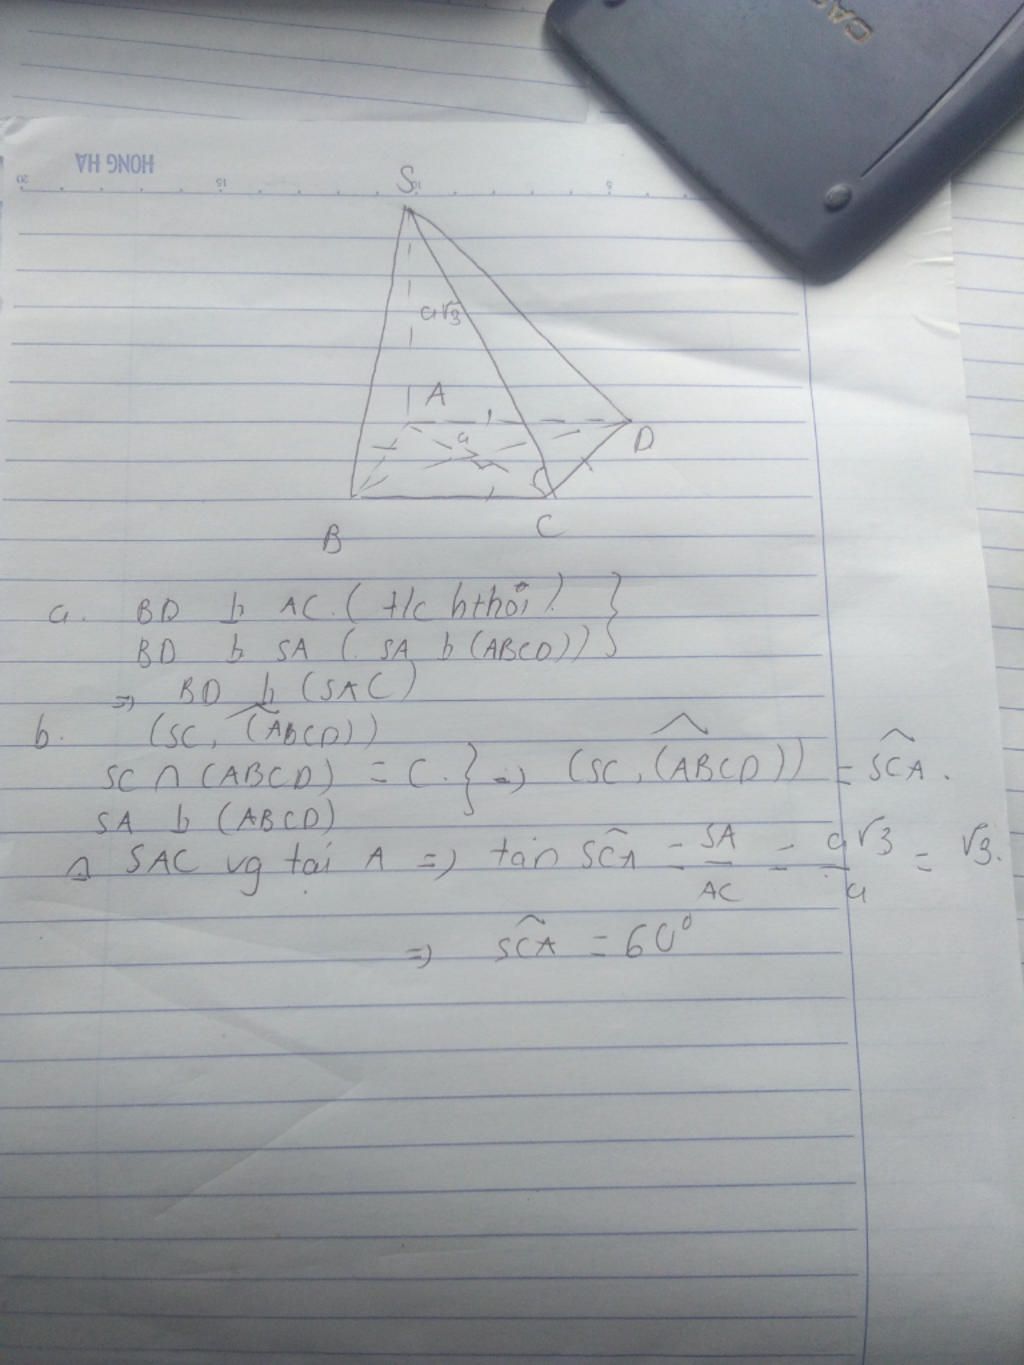 CAS
HONG HA
20 15 10 5
S
a√3
A
a
D
B
C
a. BD ⊥ AC (t/c hthoi)
BD ⊥ SA (SA ⊥ (ABCD)) }
=> BD ⊥ (SAC)
b. (SC, (ABCD))
SC ∩ (ABCD) = C. } => (SC, (ABCD)) = SCA.
SA ⊥ (ABCD)
Δ SAC vg tại A => tan SCA = SA/AC = a√3/a = √3.
=> SCA = 60°